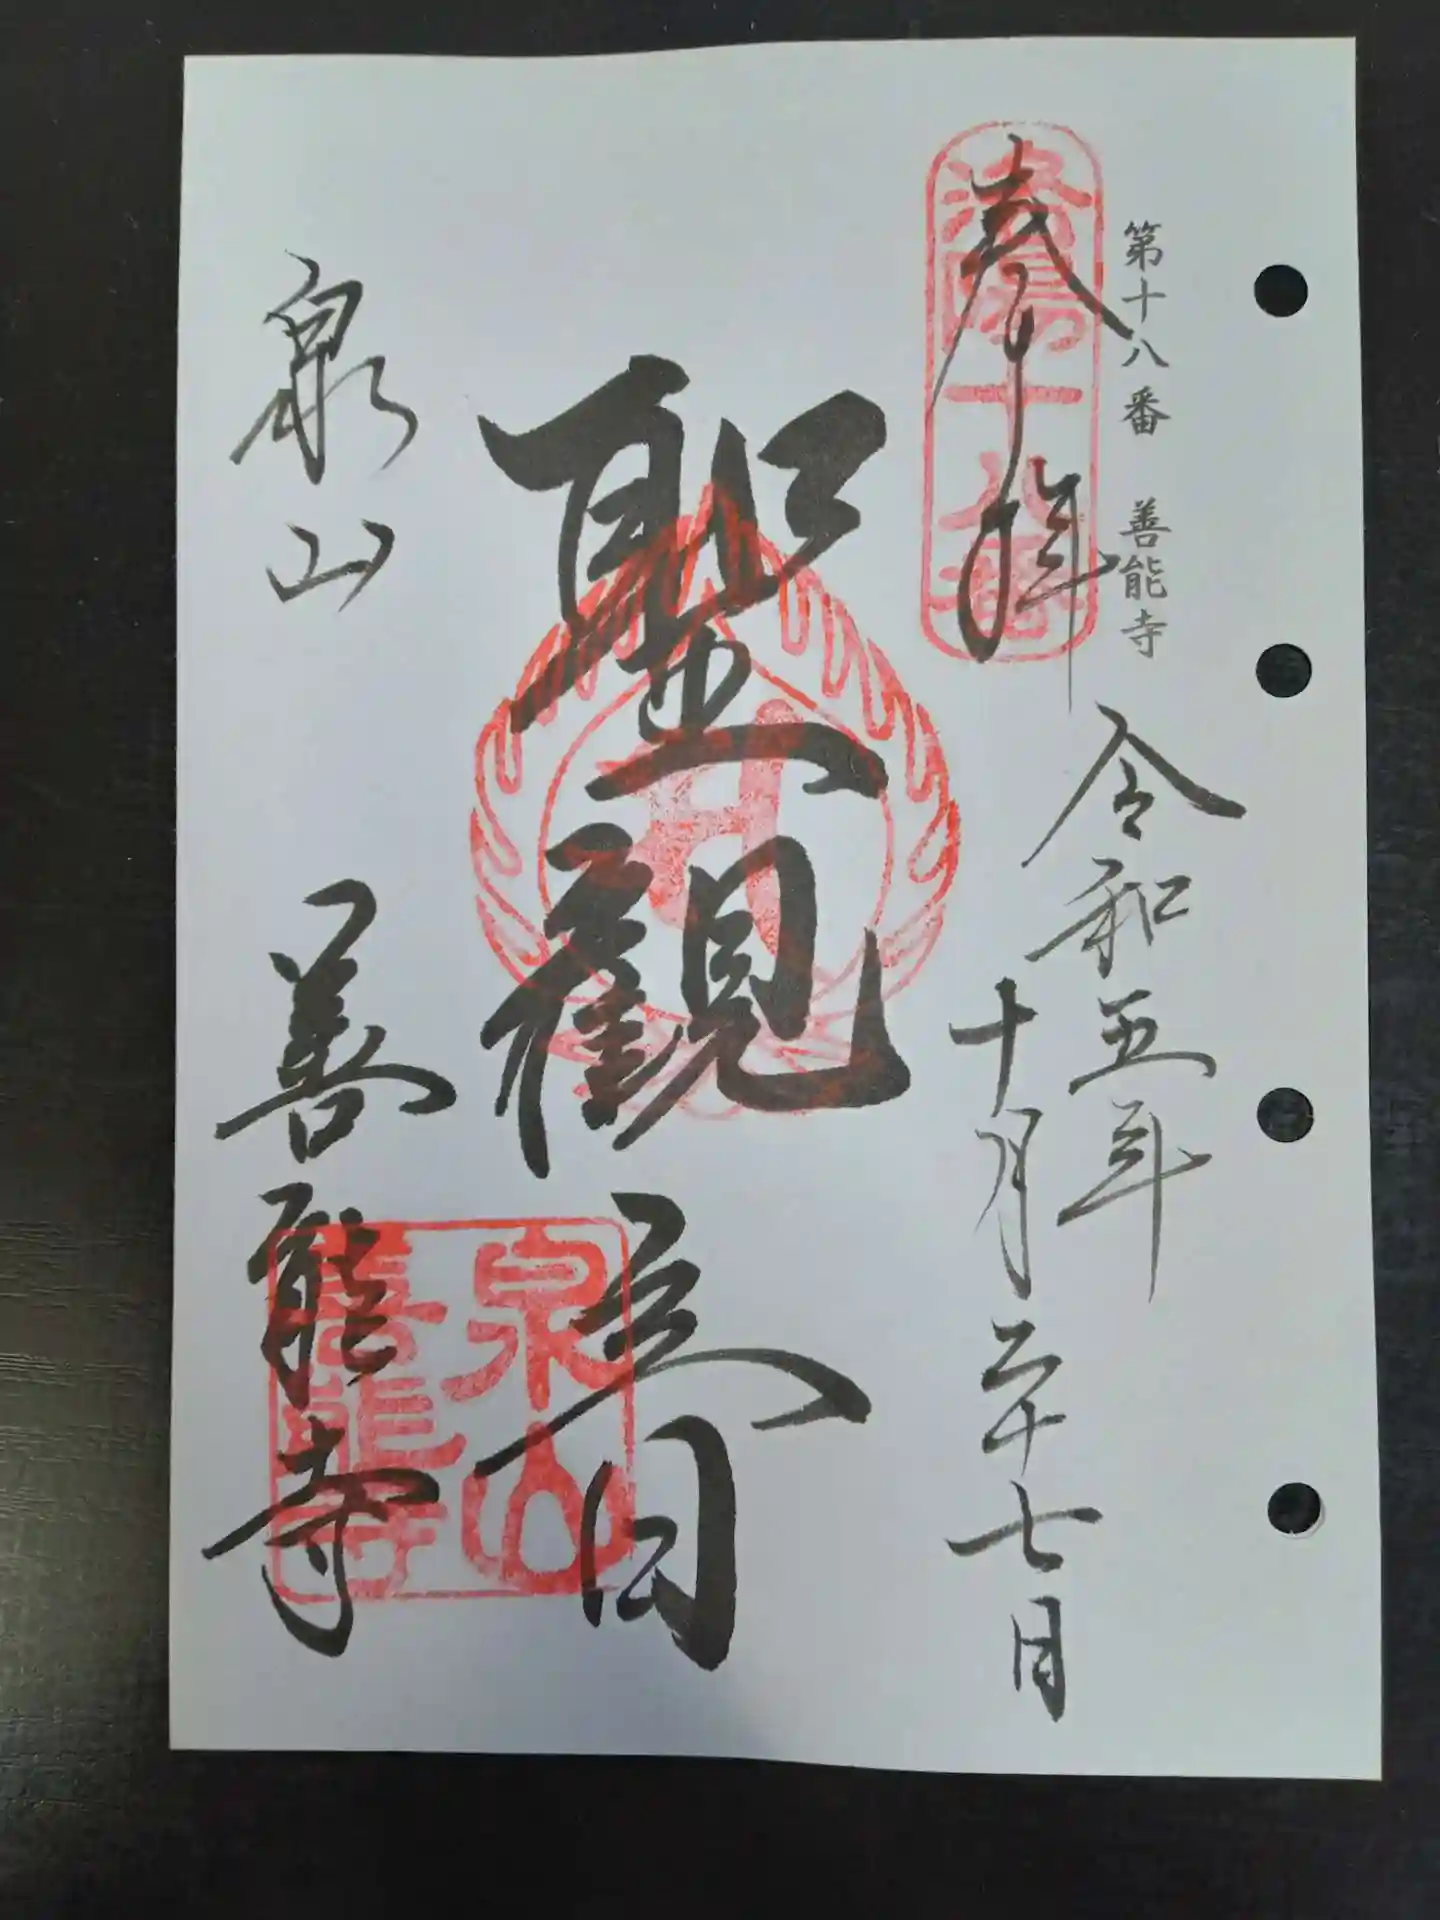 第十八番 善能寺
奉拝
洛陽十八番
令和五年
十月二十七日
聖観音
泉山
善能寺
泉山
善能寺